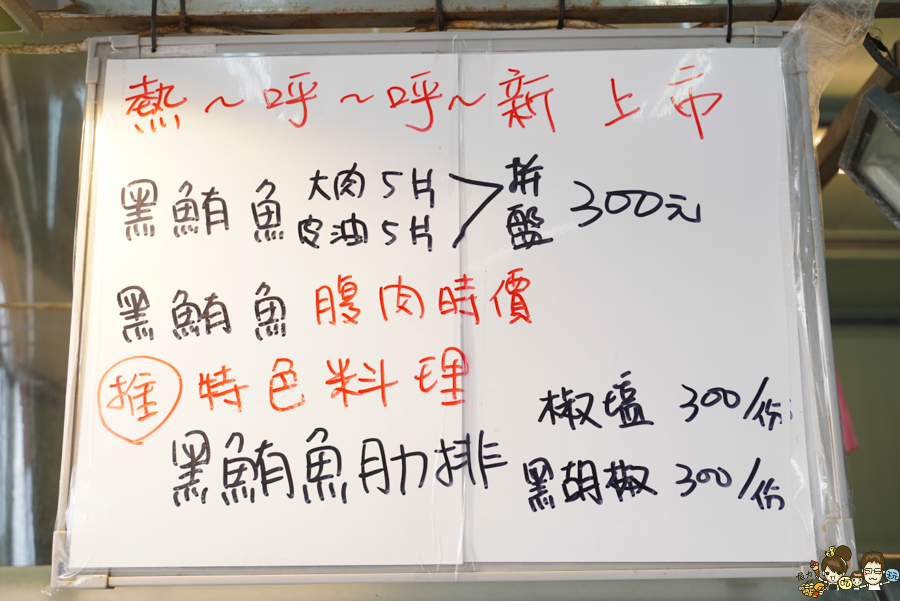 熱~呼~呼~新上市
黑鮪魚 大肉5片 拼盤 300元
皮油5片
黑鮪魚 腹肉時價
推 特色料理
黑鮪魚肋排
椒塩 300/份
黑胡椒 300/份